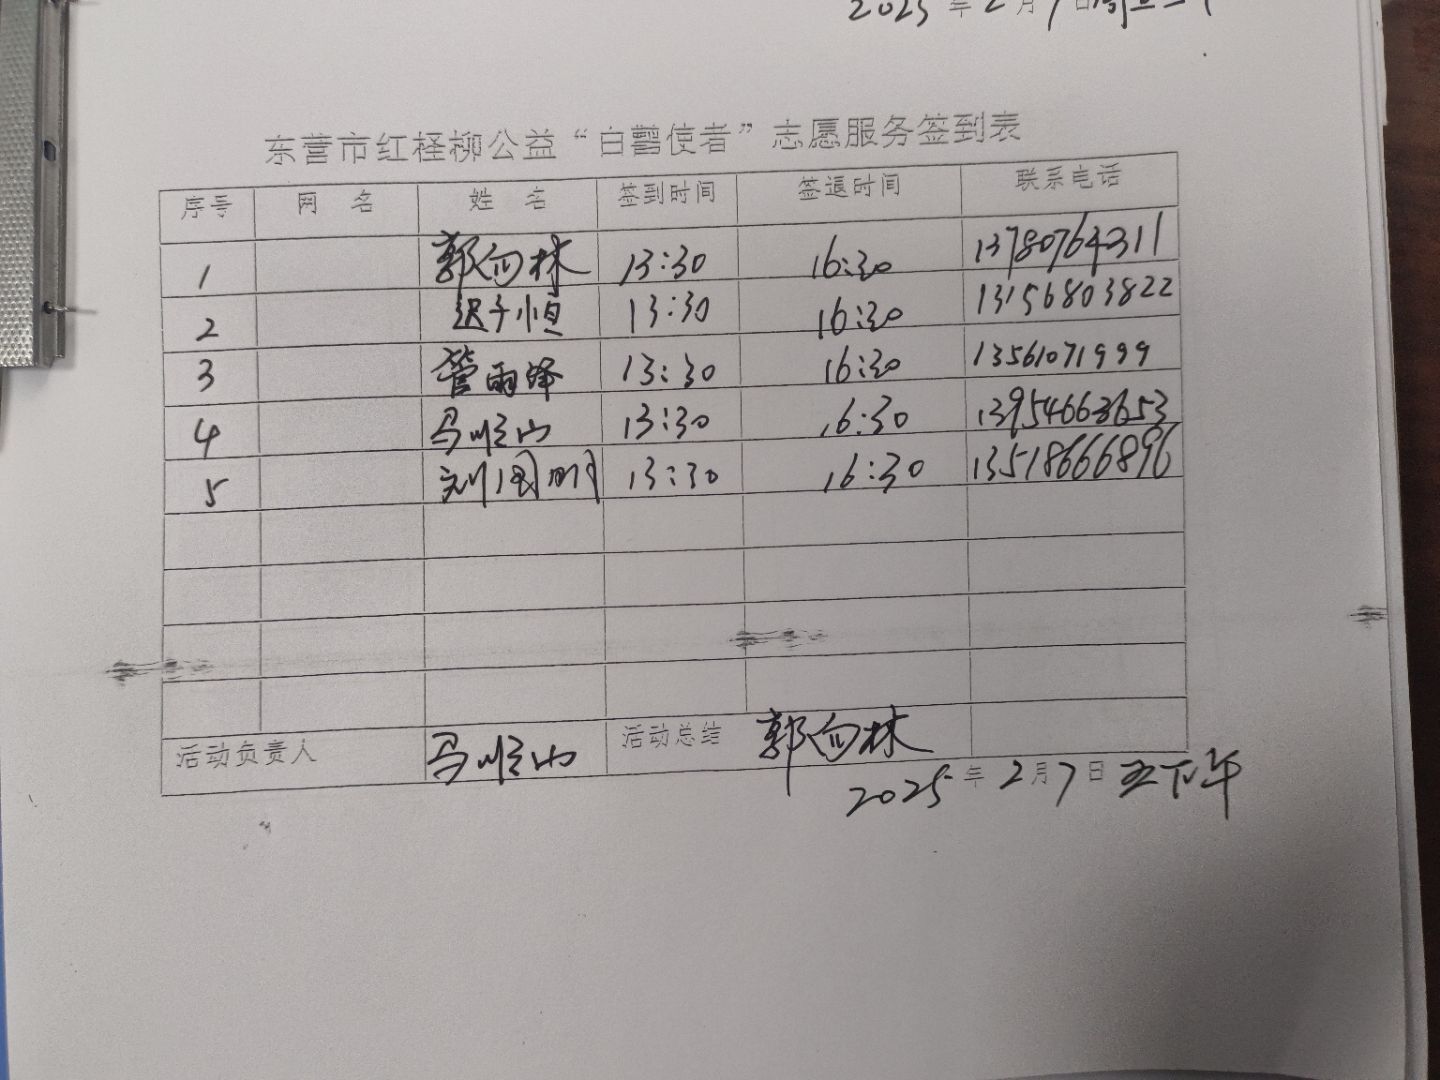 2025年2月7日
东营市红柽柳公益“白鹳使者”志愿服务签到表
序号 网 名 姓 名 签到时间 签退时间 联系电话
1 郭向林 13:30 16:30 13780764311
2 迟子恒 13:30 16:30 13156803822
3 管雨锋 13:30 16:30 13561071999
4 马顺山 13:30 16:30 13954663653
5 刘国明 13:30 16:30 13518666896
活动负责人 马顺山 活动总结 郭向林
2025年2月7日 五下午